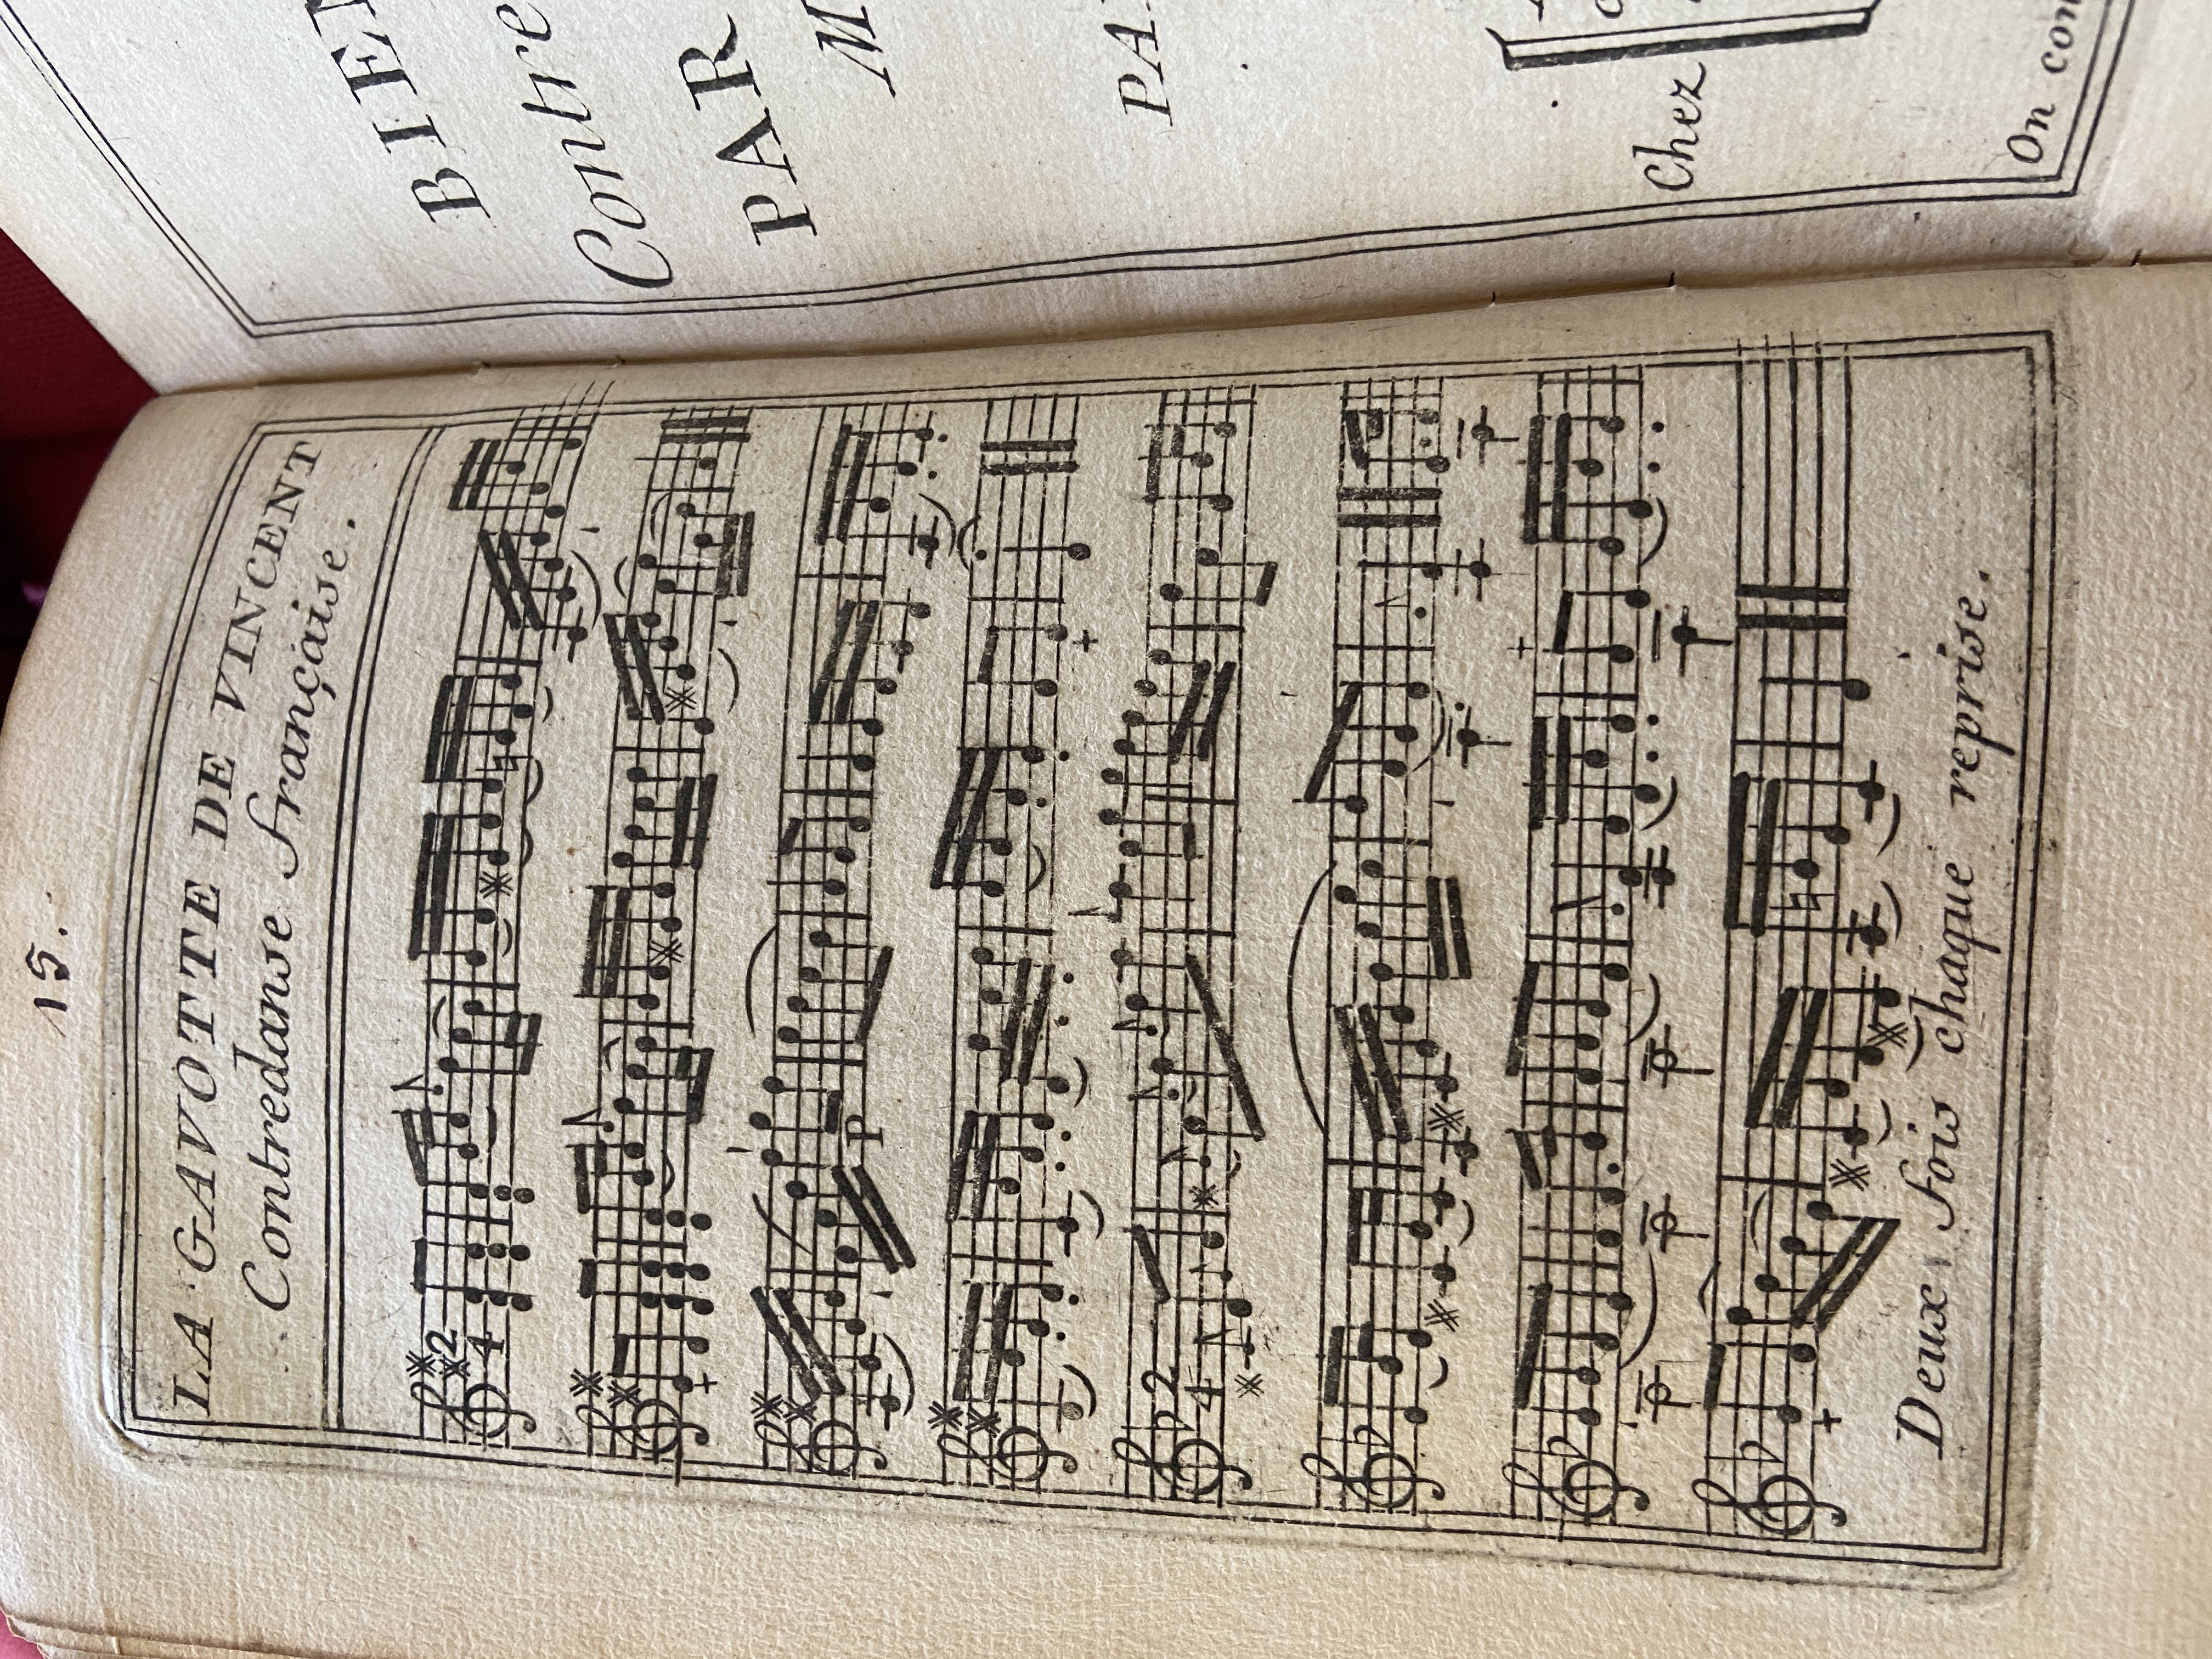 15.
LA GAVOTTE DE VINCENT
Contredanse française.
2
4
P
2
4
Deux fois chaque reprise.
Contre
PAR
Chez
On